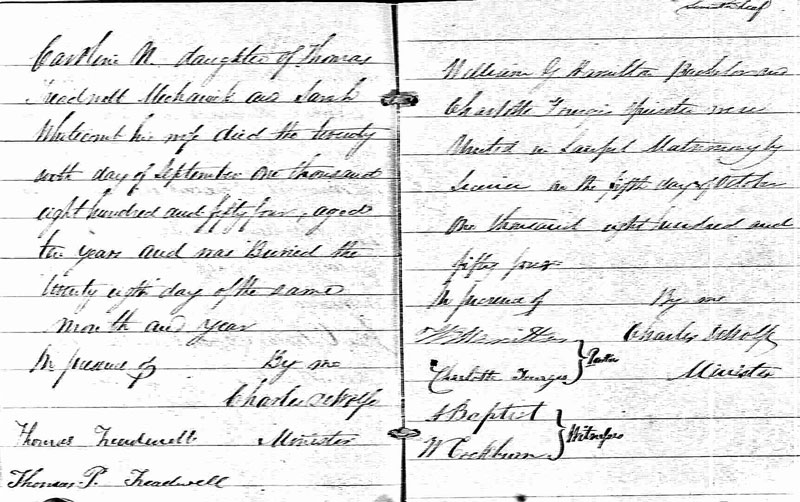 Caroline M daughter of Thomas
Treadwell Mechanick and Sarah
Whitcomb his wife died the twenty
sixth day of September one thousand
eight hundred and fifty four, aged
ten years and was Buried the
twenty eighth day of the same
month and year
In presence of By me
Charles DeWolfe
Thomas Treadwell Minister
Thomas P. Treadwell
William G Hamilton Bachelor and
Charlotte Spinster were
United in Lawful Matrimony by
on the fifth day of October
One thousand eight hundred and
fifty four
In presence of By me
W Hamilton Charles DeWolfe
Charlotte Parties Minister
A Baptist
W Cockburn Witnesses